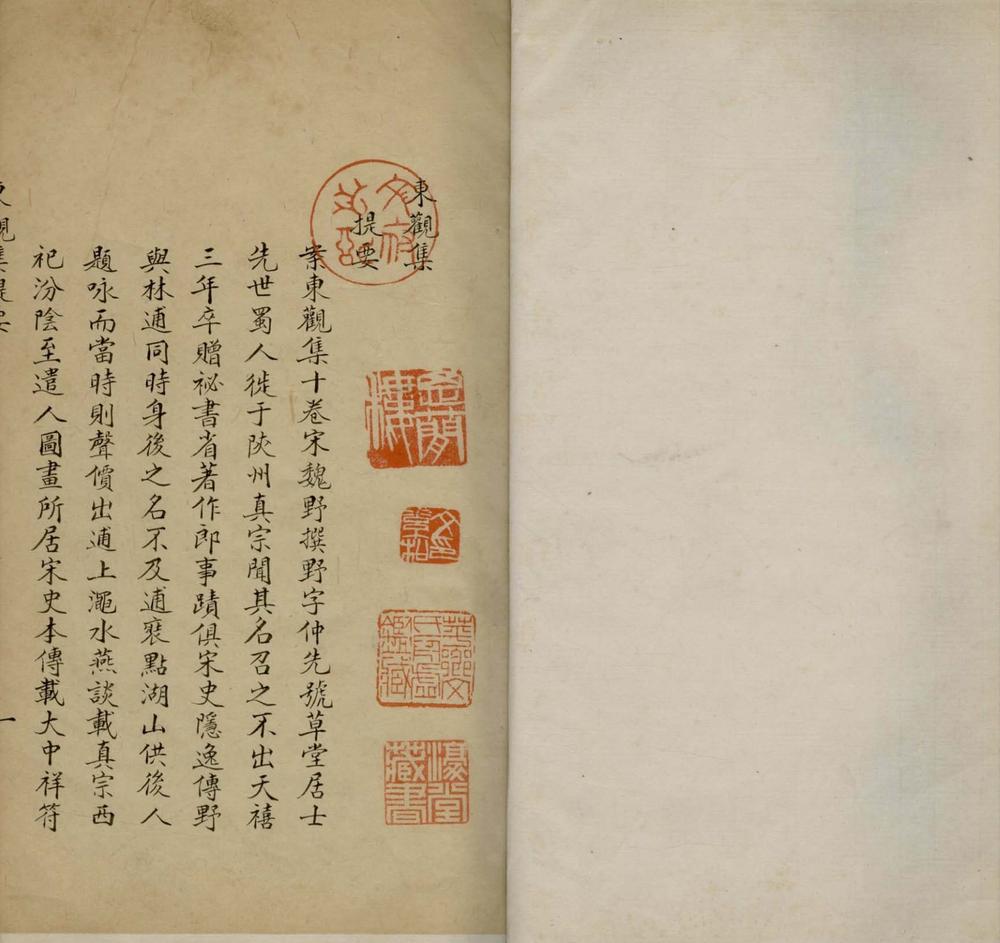 東觀集
提要
案東觀集十卷宋魏野撰野字仲先號草堂居士
先世蜀人徙于陝州真宗聞其名召之不出天禧
三年卒贈祕書省著作郎事蹟俱宋史隱逸傳野
與林逋同時身後之名不及逋裝點湖山供後人
題咏而當時則聲價出逋上澠水燕談載真宗西
祀汾陰至遣人圖畫所居宋史本傳載大中祥符
東觀集提要
一
濠堂藏書